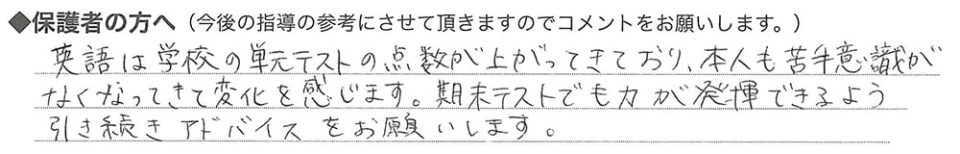 ◆保護者の方へ（今後の指導の参考にさせて頂きますのでコメントをお願いします。）
英語は学校の単元テストの点数が上がってきており、本人も苦手意識が
なくなってきて変化を感じます。期末テストでも力が発揮できるよう
引き続きアドバイスをお願いします。